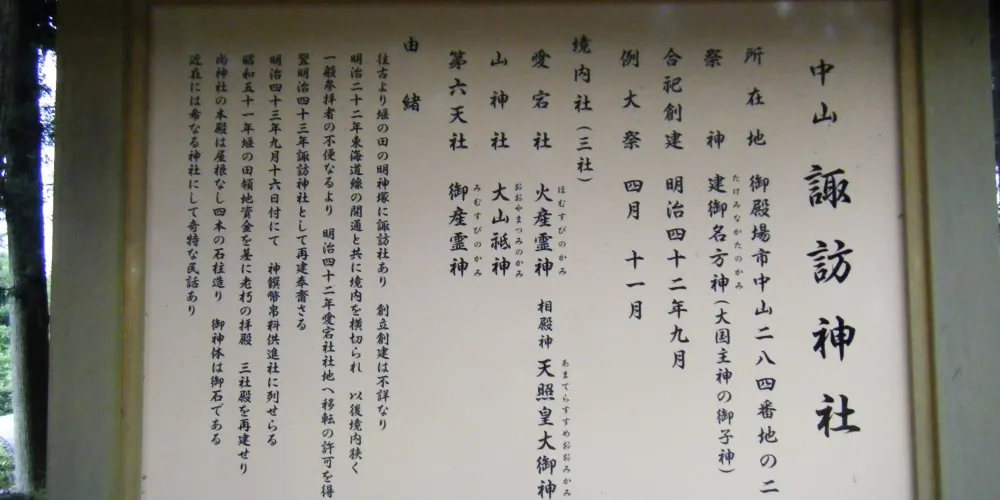 中山 諏訪神社
所在地 御殿場市中山二八四番地の二
祭神 建御名方神(大国主神の御子神)
たけみなかたのかみ
合祀創建 明治四十二年九月
例大祭 四月 十一月
境内社(三社)
愛宕社 火産霊神 相殿神 天照皇大御神
ほむすびのかみ あまてらすすめおおみかみ
山神社 大山祗神
おおやまつみのかみ
第六天社 御産霊神
みむすびのかみ
由緒
往古より堰の田の明神塚に諏訪社あり 創立創建は不詳なり
明治二十二年東海道線の開通と共に境内を横切られ 以後境内狭く
一般参拝者の不便なるより 明治四十二年愛宕社社地へ移転の許可を得
翌明治四十三年諏訪神社として再建奉斎さる
明治四十三年九月十六日付にて 神饌幣帛料供進社に列せらる
昭和五十一年堰の田領地資金を基に老朽の拝殿 三社殿を再建せり
尚神社の本殿は屋根なし四本の石柱造り 御神体は御石である
近在には希なる神社にして奇特な民話あり